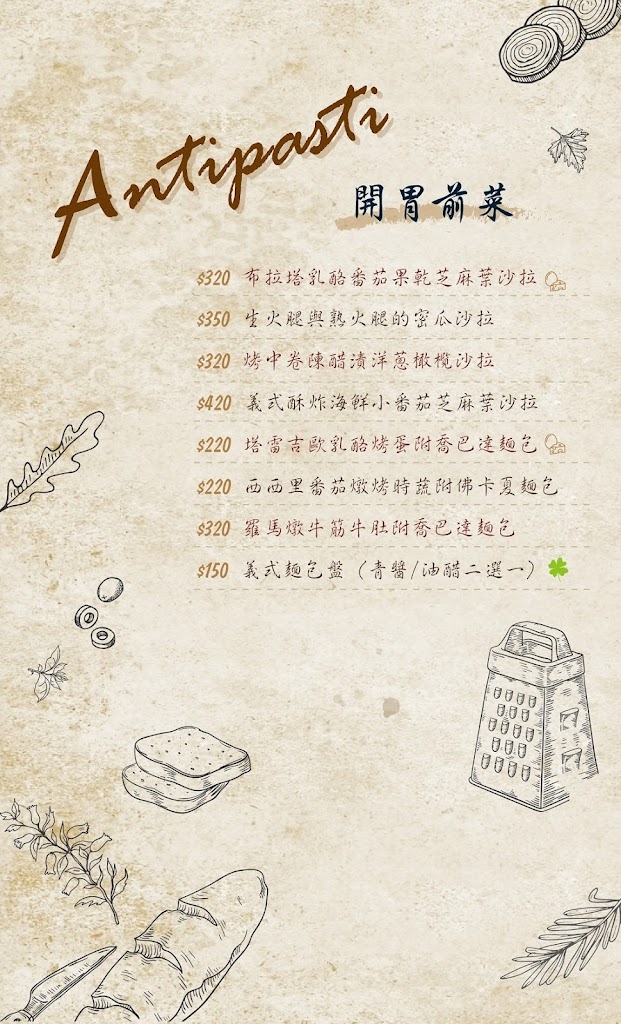 Antipasti
開胃前菜
$320 布拉塔乳酪番茄果乾芝麻葉沙拉
$350 生火腿與熟火腿的密瓜沙拉
$320 烤中卷陳醋漬洋蔥橄欖沙拉
$420 義式酥炸海鮮小番茄芝麻葉沙拉
$220 塔雷吉歐乳酪烤蛋附喬巴達麵包
$220 西西里番茄燉烤時蔬附佛卡夏麵包
$320 羅馬燉牛筋牛肚附喬巴達麵包
$150 義式麵包盤（青醬/油醋二選一）